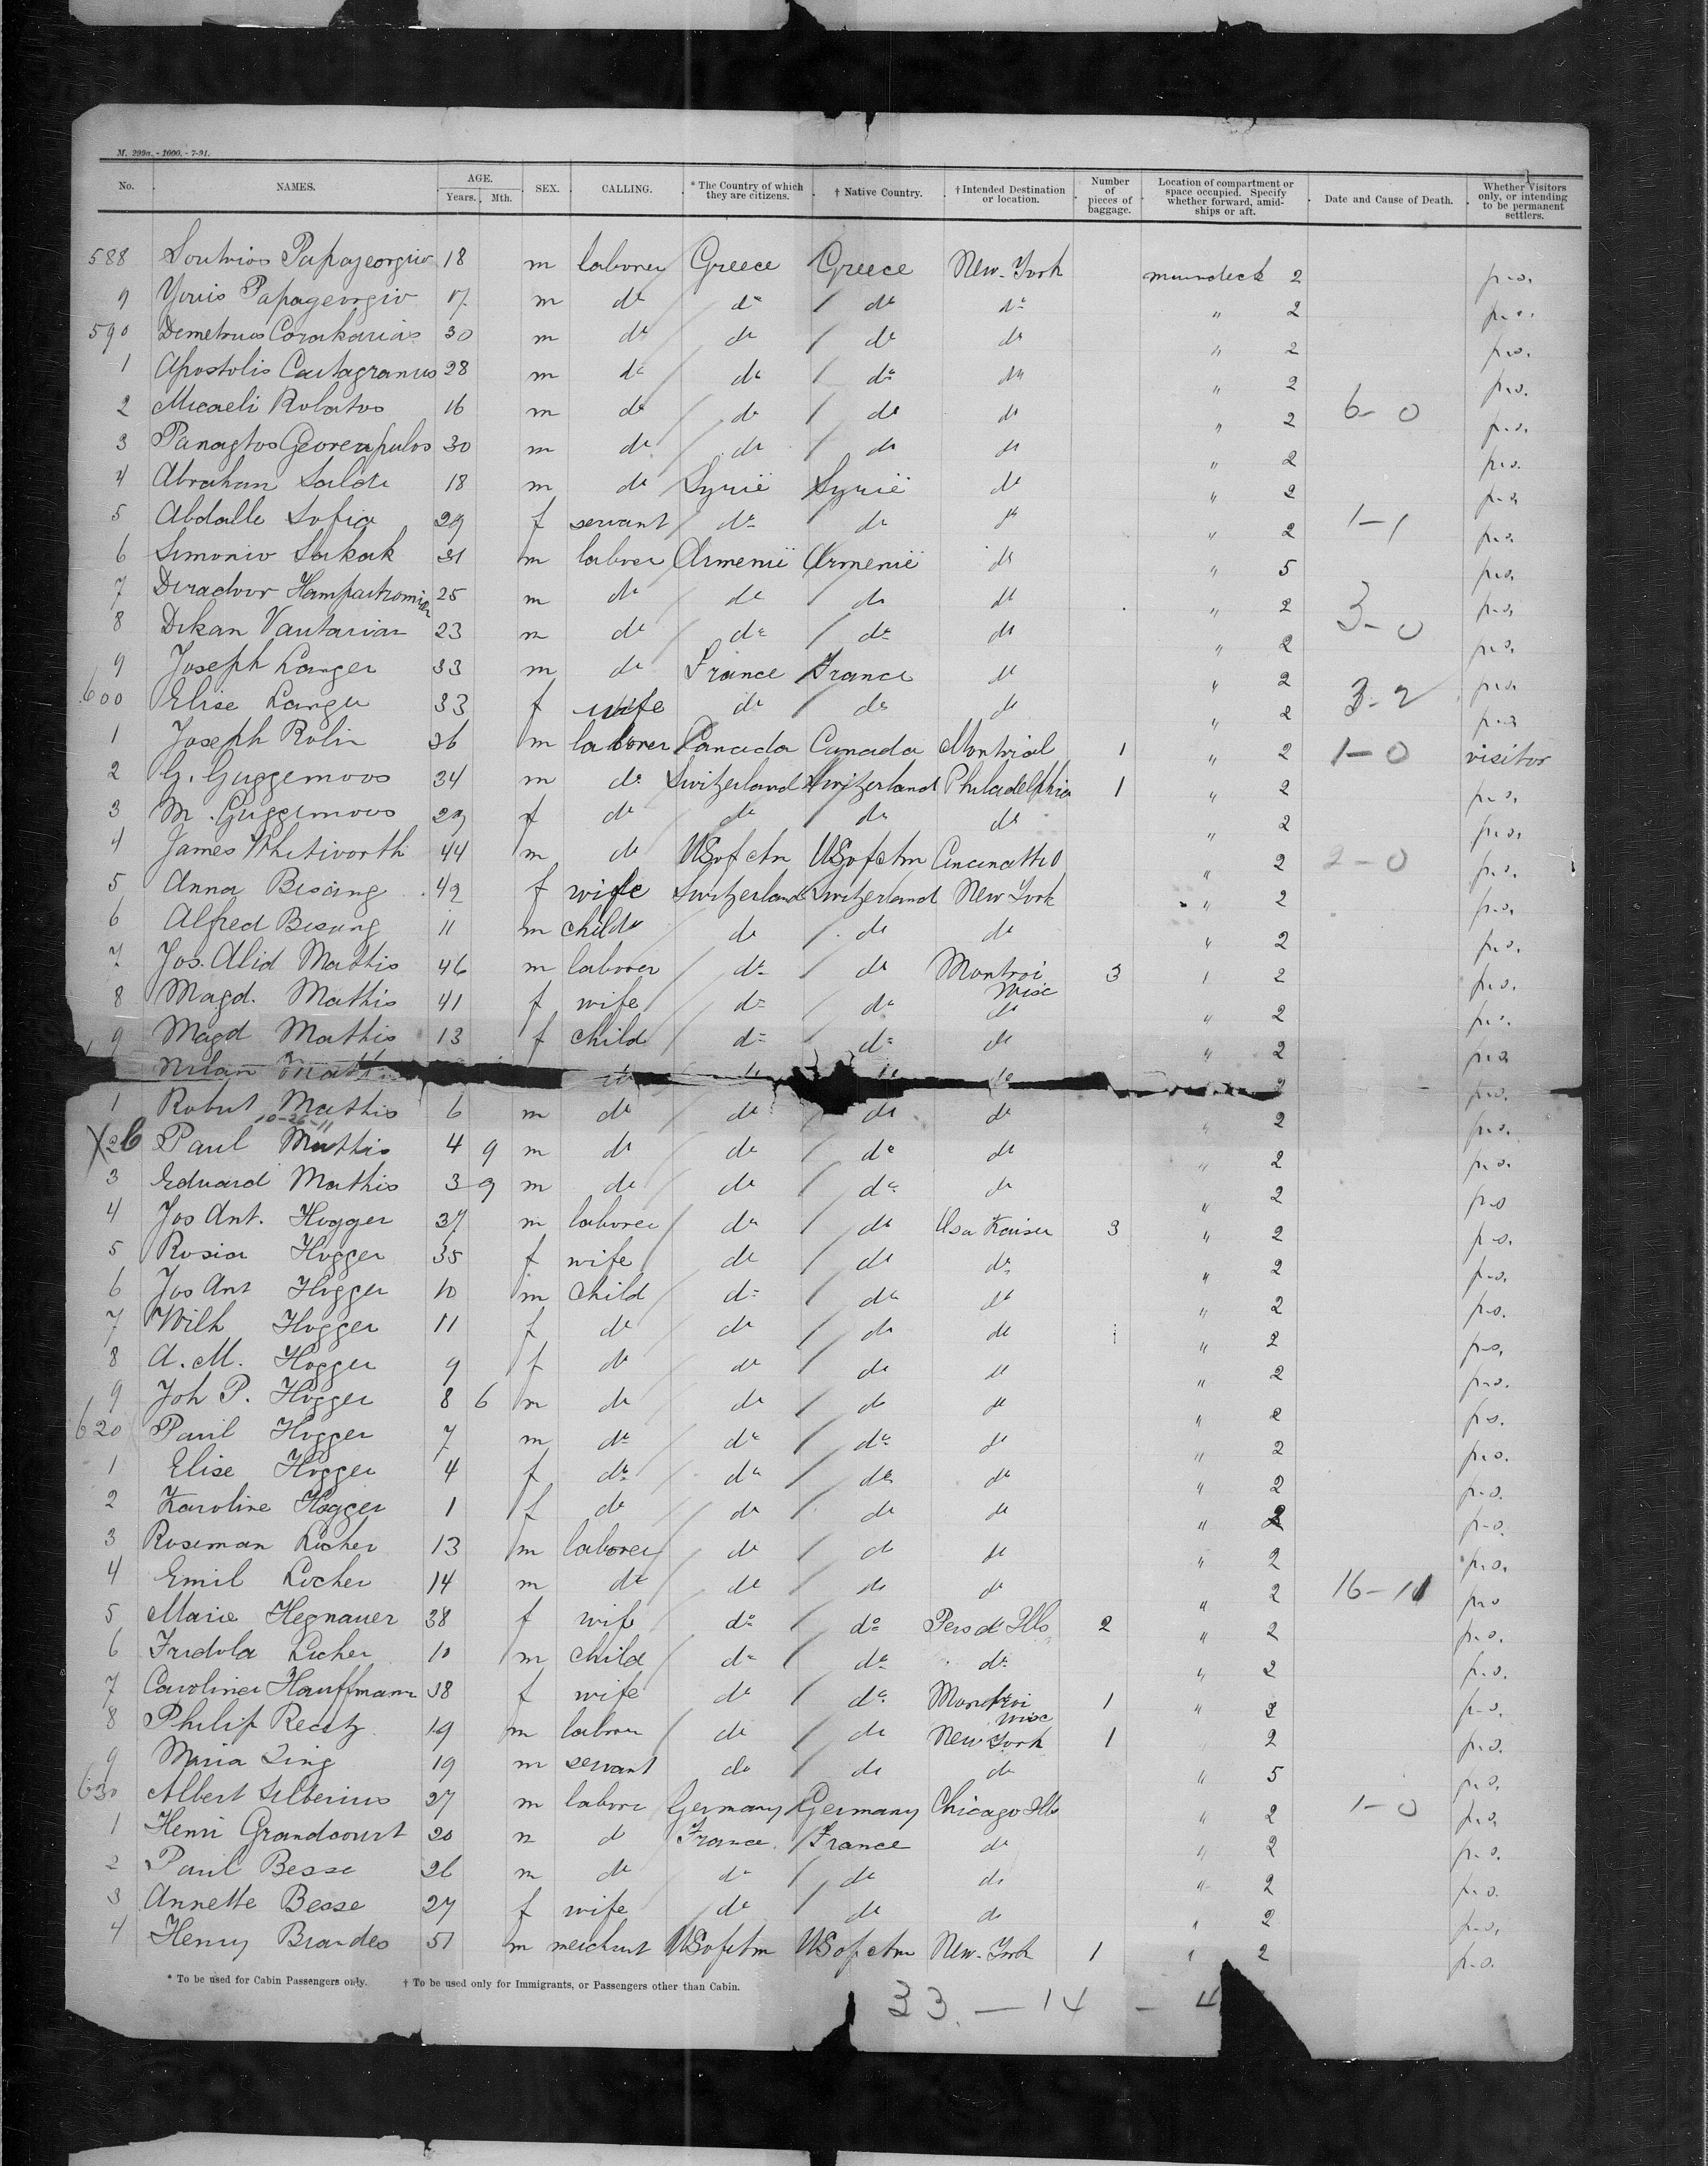 M. 299a. - 1000. - 7-91.
No. NAMES. AGE. Years. Mth. SEX. CALLING. * The Country of which they are citizens. † Native Country. † Intended Destination or location. Number of pieces of baggage. Location of compartment or space occupied. Specify whether forward, amidships or aft. Date and Cause of Death. Whether Visitors only, or intending to be permanent settlers.
588 Papageorgiu 18 m laborer Greece Greece New-York 2 p.s.
9 Papageorgiv 17 m do do do do " 2 p.s.
590 30 m do do do do " 2 p.s.
1 Apostolis 28 m do do do do " 2 p.s.
2 Micaeli Robatos 16 m do do do do " 2 6-0 p.s.
3 30 m do do do do " 2 p.s.
4 Abraham 18 m do Syrië Syrië do " 2 p.s.
5 Abdalle Sofia 29 f servant do do do " 2 1-1 p.s.
6 Simoniv Sakak 31 m laborer Armenië Armenië do " 5 p.s.
7 25 m do do do do " 2 p.s.
8 Dikan Vartarian 23 m do do do do " 2 3-0 p.s.
9 Joseph Langer 33 m do France France do " 2 p.s.
600 Elise Langer 33 f wife do do do " 2 3-2 p.s.
1 Joseph Rolin 36 m laborer Canada Canada Montrial 1 " 2 1-0 visitor
2 G. Guggemoos 34 m do Switzerland Switzerland Philadelphia 1 " 2 p.s.
3 M. Guggemoos 29 f do do do do " 2 p.s.
4 James Whitworth 44 m do US of Am US of Am Cincinatti O " 2 2-0 p.s.
5 Anna Bisang 42 f wife Switzerland Switzerland New York " 2 p.s.
6 Alfred Bisang 11 m child do do do " 2 p.s.
7 Jos. Alid Mathis 46 m laborer do do Montroi Wisc 3 " 2 p.s.
8 Magd. Mathis 41 f wife do do do " 2 p.s.
9 Magd Mathis 13 f child do do do " 2 p.s.
do do do do 2 p.s.
1 Robert Mathis 6 m do do do do " 2 p.s.
10-26-11
X26 Paul Mathis 4 9 m do do do do " 2 p.s.
3 Eduard Mathis 3 9 m do do do do " 2 p.s
4 Jos Ant. Hogger 37 m laborer do do 3 " 2 p.s.
5 Rosia Hogger 35 f wife do do do " 2 p.s.
6 Jos Ant Hogger 10 m child do do do " 2 p.s.
7 Wilh Hogger 11 f do do do do " 2 p.s.
8 A. M. Hogger 9 f do do do do " 2 p.s.
9 Joh P. Hogger 8 6 m do do do do " 2 p.s.
620 Paul Hogger 7 m do do do do " 2 p.s.
1 Elise Hogger 4 f do do do do " 2 p.s.
2 Karoline Hogger 1 f do do do do " 2 p.s.
3 Roseman Locher 13 m laborer do do do " 2 p.s.
4 Emil Locher 14 m do do do do " 2 16-11 p.s
5 Marie Hegnauer 38 f wife do do Ills 2 " 2 p.s.
6 Fridola Locher 10 m child do do do " 2 p.s.
7 Carolina Hauffmann 38 f wife do do Mondovi Wisc 1 " 2 p.s.
8 Philip 19 m laborer do do New York 1 2 p.s.
9 Maria Zing 19 m servant do do do " 5 p.s.
630 Albert Silberius 27 m labore Germany Germany Chicago Ills " 2 1-0 p.s.
1 Henri Grandcourt 20 m d France France do " 2 p.s.
2 Paul Besse 26 m do do do do " 2 p.s.
3 Annette Besse 27 f wife do do do " 2 p.s.
4 Henry Brandes 51 m merchant US of Am US of Am New-York 1 " 2 p.s.
* To be used for Cabin Passengers only. † To be used only for Immigrants, or Passengers other than Cabin.
33. — 14 — 4